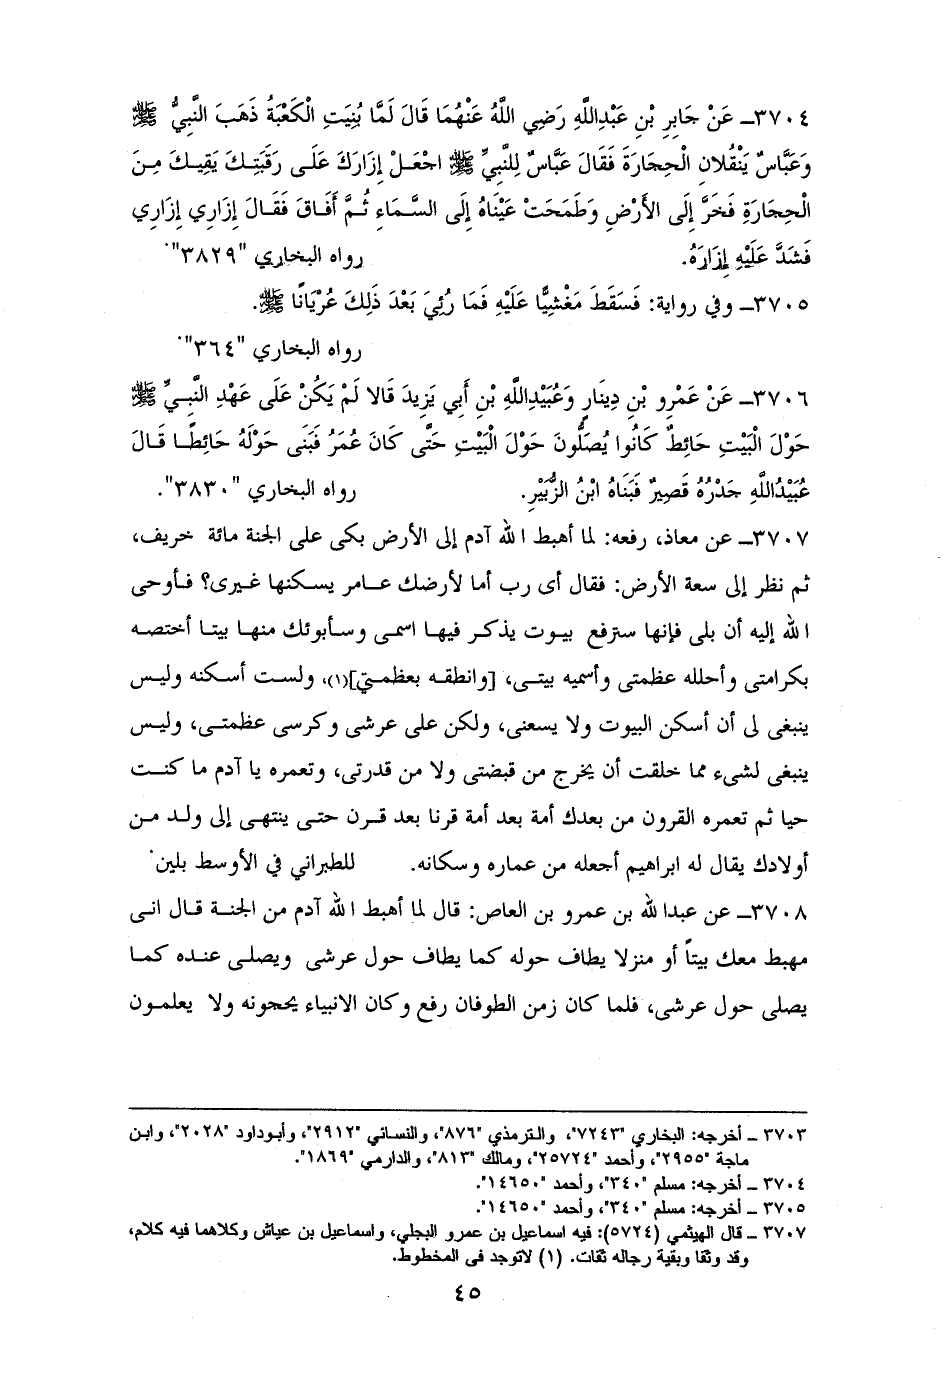 ٣٧٠٤ـ عَنْ جَابِرِ بْنِ عَبْدِاللَّهِ رَضِي اللَّهُ عَنْهُمَا قَالَ لَمَّا بُنِيَتِ الْكَعْبَةُ ذَهَبَ النَّبِيُّ ﷺ
وَعَبَّاسٌ يَنْقُلانِ الْحِجَارَةَ فَقَالَ عَبَّاسٌ لِلنَّبِيِّ ﷺ اجْعَلْ إِزَارَكَ عَلَى رَقَبَتِكَ يَقِيكَ مِنَ
الْحِجَارَةِ فَخَرَّ إِلَى الأَرْضِ وَطَمَحَتْ عَيْنَاهُ إِلَى السَّمَاءِ ثُمَّ أَفَاقَ فَقَالَ إِزَارِي إِزَارِي
فَشَدَّ عَلَيْهِ إِزَارَهُ. رواه البخاري "٣٨٢٩".
٣٧٠٥ـ وفي رواية: فَسَقَطَ مَغْشِيًّا عَلَيْهِ فَمَا رُئِيَ بَعْدَ ذَلِكَ عُرْيَانًا ﷺ.
رواه البخاري "٣٦٤".
٣٧٠٦ـ عَنْ عَمْرِو بْنِ دِينَارٍ وَعُبَيْدِاللَّهِ بْنِ أَبِي يَزِيدَ قَالا لَمْ يَكُنْ عَلَى عَهْدِ النَّبِيِّ ﷺ
حَوْلَ الْبَيْتِ حَائِطٌ كَانُوا يُصَلُّونَ حَوْلَ الْبَيْتِ حَتَّى كَانَ عُمَرُ فَبَنَى حَوْلَهُ حَائِطًا قَالَ
عُبَيْدُاللَّهِ جَدْرُهُ قَصِيرٌ فَبَنَاهُ ابْنُ الزُّبَيْرِ. رواه البخاري "٣٨٣٠".
٣٧٠٧ـ عن معاذ، رفعه: لما أهبط الله آدم إلى الأرض بكى على الجنة مائة خريف،
ثم نظر إلى سعة الأرض: فقال أى رب أما لأرضك عامر يسكنها غيرى؟ فأوحى
الله إليه أن بلى فإنها سترفع بيوت يذكر فيها اسمى وسأبوئك منها بيتا أختصه
بكرامتى وأحلله عظمتى وأسميه بيتى، [وانطقه بعظمتي](١)، ولست أسكنه وليس
ينبغى لى أن أسكن البيوت ولا يسعنى، ولكن على عرشى وكرسى عظمتى، وليس
ينبغى لشيء مما خلقت أن يخرج من قبضتى ولا من قدرتى، وتعمره يا آدم ما كنت
حيا ثم تعمره القرون من بعدك أمة بعد أمة قرنا بعد قرن حتى ينتهى إلى ولد من
أولادك يقال له ابراهيم أجعله من عماره وسكانه. للطبراني في الأوسط بلين.
٣٧٠٨ـ عن عبدالله بن عمرو بن العاص: قال لما أهبط الله آدم من الجنة قال انى
مهبط معك بيتاً أو منزلا يطاف حوله كما يطاف حول عرشى ويصلى عنده كما
يصلى حول عرشى، فلما كان زمن الطوفان رفع وكان الانبياء يحجونه ولا يعلمون
٣٧٠٣ ـ أخرجه: البخاري "٧٢٤٣"، والترمذي "٨٧٦"، والنسائي "٢٩١٢"، وأبوداود "٢٠٢٨"، وابن
ماجة "٢٩٥٥"، وأحمد "٢٥٧٢٤"، ومالك "٨١٣"، والدارمي "١٨٦٩".
٣٧٠٤ ـ أخرجه: مسلم "٣٤٠"، وأحمد "١٤٦٥٠".
٣٧٠٥ ـ أخرجه: مسلم "٣٤٠"، وأحمد "١٤٦٥٠".
٣٧٠٧ ـ قال الهيثمي (٥٧٢٤): فيه اسماعيل بن عمرو البجلي، واسماعيل بن عياش وكلاهما فيه كلام،
وقد وثقا وبقية رجاله ثقات. (١) لاتوجد فى المخطوط.
٤٥